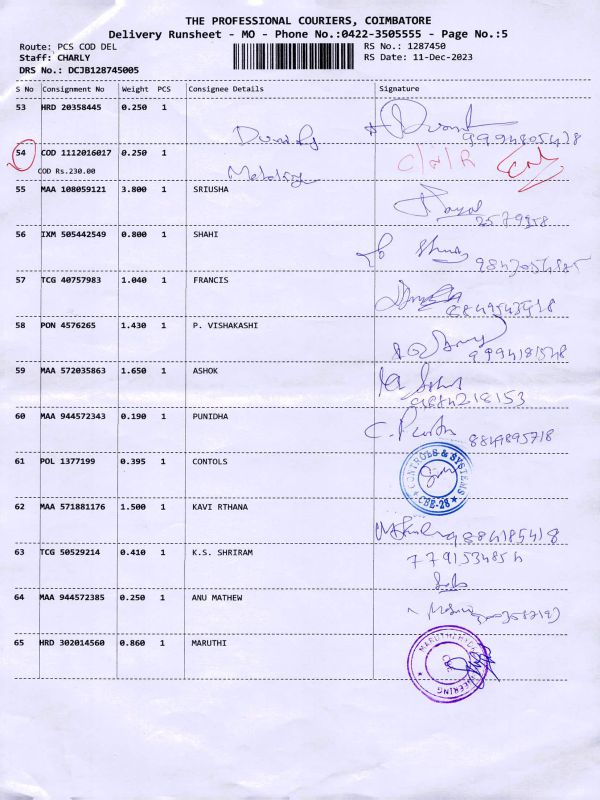 THE PROFESSIONAL COURIERS, COIMBATORE
Delivery Runsheet - MO - Phone No.:0422-3505555 - Page No.:5
Route: PCS COD DEL
Staff: CHARLY
DRS No.: DCJB128745005
RS No.: 1287450
RS Date: 11-Dec-2023
S No Consignment No Weight PCS Consignee Details Signature
53 HRD 20358445 0.250 1
9994805478
54 COD 1112016017 0.250 1 C/N/R
COD Rs.230.00
55 MAA 108059121 3.800 1 SRIUSHA
2579958
56 IXM 505442549 0.800 1 SHAHI
57 TCG 40757983 1.040 1 FRANCIS
58 PON 4576265 1.430 1 P. VISHAKASHI
59 MAA 572035863 1.650 1 ASHOK
9884218153
60 MAA 944572343 0.190 1 PUNIDHA
8849895718
61 POL 1377199 0.395 1 CONTOLS
CONTROLS & SYSTEMS
CBE-28
62 MAA 571881176 1.500 1 KAVI RTHANA
9884185418
63 TCG 50529214 0.410 1 K.S. SHRIRAM
64 MAA 944572385 0.250 1 ANU MATHEW
65 HRD 302014560 0.860 1 MARUTHI